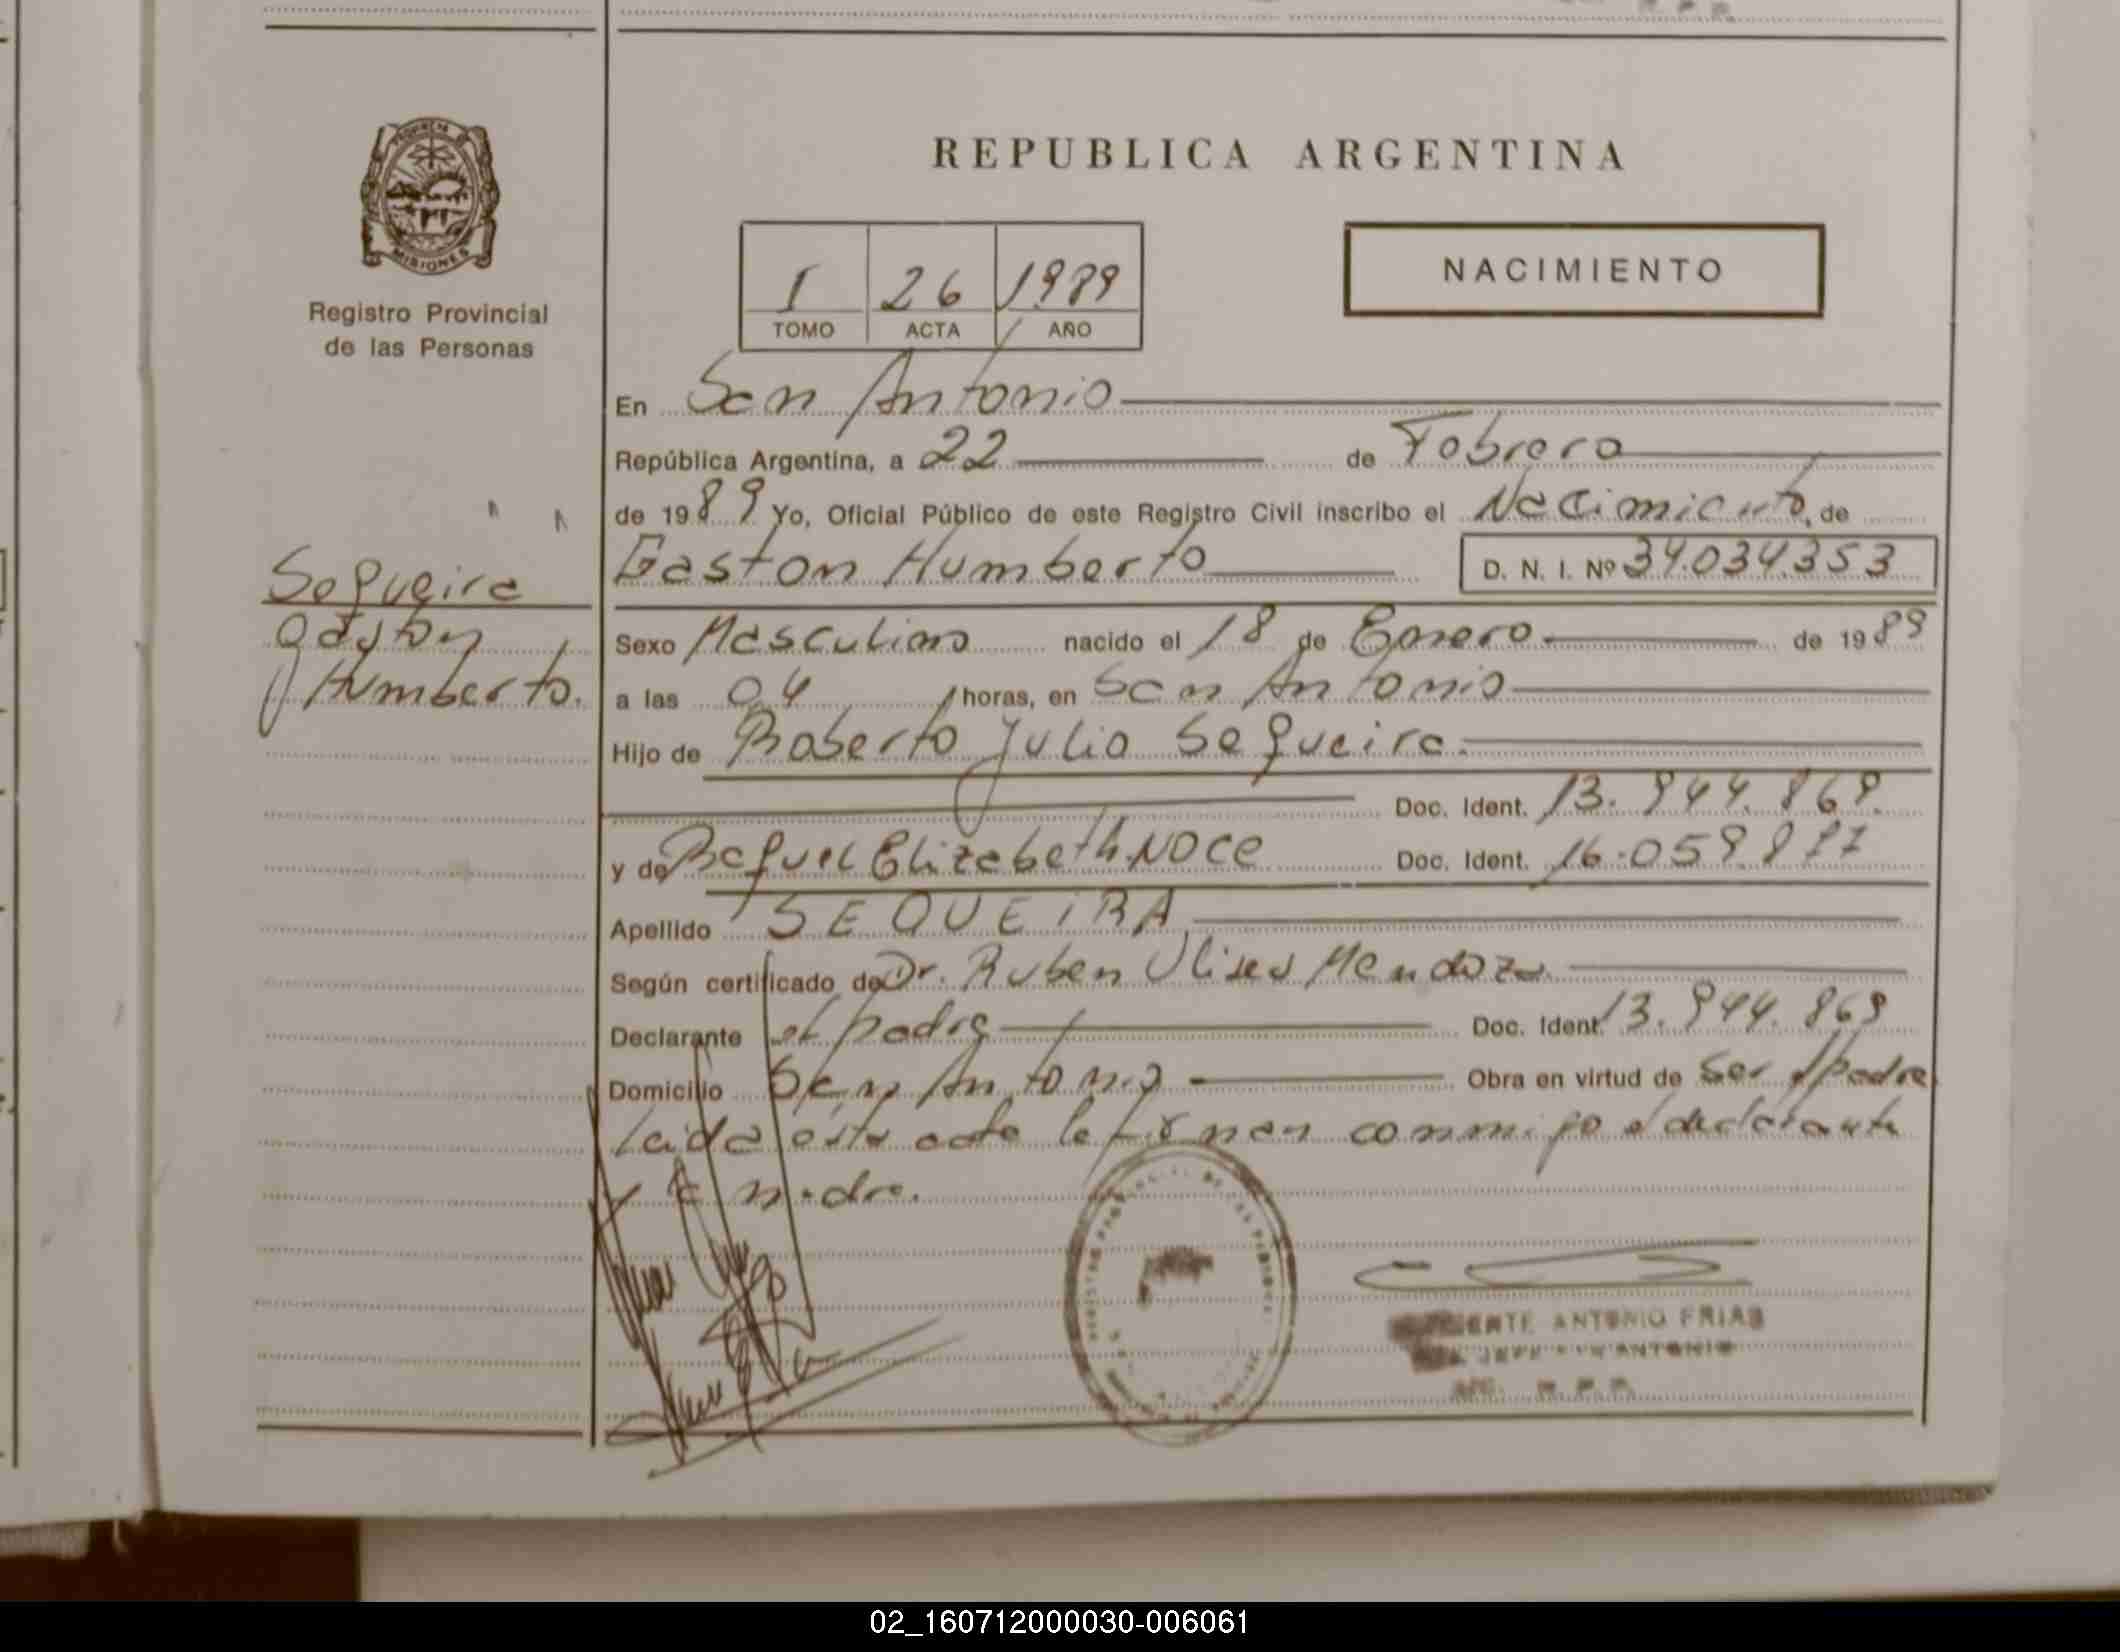 PROVINCIA DE
MISIONES
Registro Provincial
de las Personas
Sequeira
Gaston
Humberto.
REPUBLICA ARGENTINA
I 26 1989
TOMO ACTA AÑO
NACIMIENTO
En San Antonio
República Argentina, a 22 de Febrero
de 1989 Yo, Oficial Público de este Registro Civil inscribo el Nacimiento, de
Gaston Humberto D. N. I. Nº 34.034.353
Sexo Masculino nacido el 18 de Enero de 1989
a las 04 horas, en San Antonio
Hijo de Roberto Julio Sequeira.
Doc. Ident. 13.944.869.
y de Raquel Elizabeth NOCE Doc. Ident. 16.059.877
Apellido SEQUEIRA
Según certificado de Dr. Ruben Ulises Mendoza
Declarante el padre Doc. Ident. 13.944.869
Domicilio San Antonio Obra en virtud de Ser el padre
Leida esta acta la firman conmigo el declarante
y la madre.
ANTONIO FRIAS
JEFE ANTONIO
R. P. P.
02_160712000030-006061